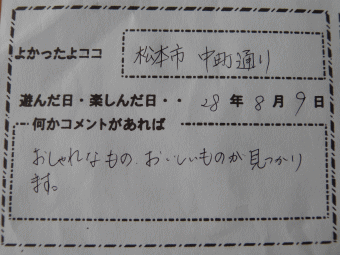 よかったよココ 松本市 中町通り
遊んだ日・楽しんだ日・・ 28 年 8 月 9 日
何かコメントがあれば
おしゃれなもの、おいしいものが見つかり
ます。